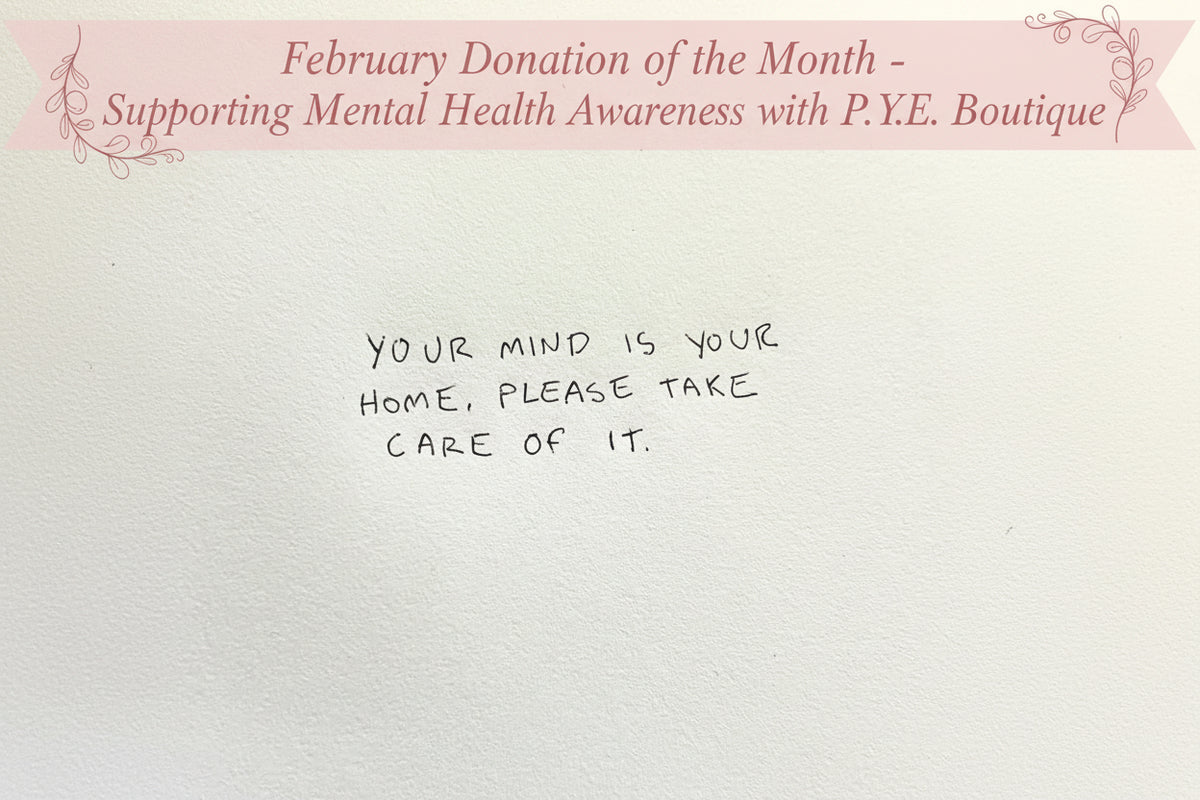 February Donation of the Month -
Supporting Mental Health Awareness with P.Y.E. Boutique
YOUR MIND IS YOUR
HOME, PLEASE TAKE
CARE OF IT.